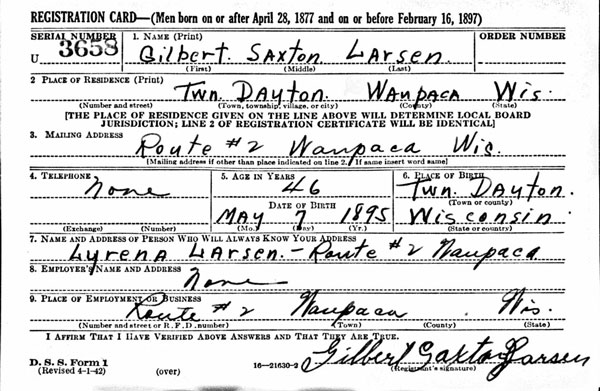 REGISTRATION CARD—(Men born on or after April 28, 1877 and on or before February 16, 1897)
SERIAL NUMBER 1. NAME (Print) ORDER NUMBER
U 3658 Gilbert Saxton Larsen
(First) (Middle) (Last)
2 PLACE OF RESIDENCE (Print)
Twn. Dayton. Waupaca Wis.
(Number and street) (Town, township, village, or city) (County) (State)
[THE PLACE OF RESIDENCE GIVEN ON THE LINE ABOVE WILL DETERMINE LOCAL BOARD
JURISDICTION; LINE 2 OF REGISTRATION CERTIFICATE WILL BE IDENTICAL]
3. MAILING ADDRESS
Route #2 Waupaca Wis.
[Mailing address if other than place indicated on line 2. If same insert word same]
4. TELEPHONE 5. AGE IN YEARS 6. PLACE OF BIRTH
None 46 Twn. Dayton.
DATE OF BIRTH (Town or county)
May 7 1895 Wisconsin.
(Exchange) (Number) (Mo.) (Day) (Yr.) (State or country)
7. NAME AND ADDRESS OF PERSON WHO WILL ALWAYS KNOW YOUR ADDRESS
Lyrena Larsen.—Route #2 Waupaca
8. EMPLOYER'S NAME AND ADDRESS
None
9. PLACE OF EMPLOYMENT OR BUSINESS
Route #2 Waupaca Wis.
(Number and street or R. F. D. number) (Town) (County) (State)
I AFFIRM THAT I HAVE VERIFIED ABOVE ANSWERS AND THAT THEY ARE TRUE.
Gilbert Saxton Larsen
D. S. S. Form 1 16—21630-2 (Registrant's signature)
(Revised 4-1-42) (over)